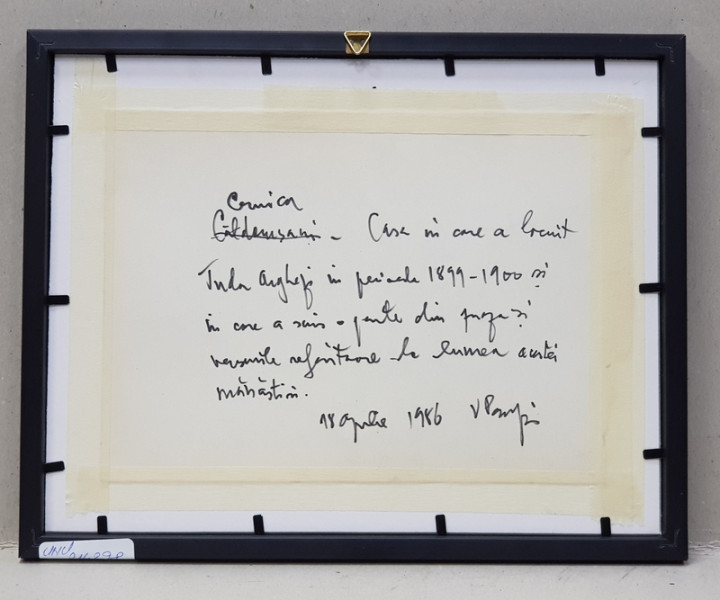 Cernica
Căldărușani - Casa în care a locuit
Tudor Arghezi în perioada 1899-1900 și
în care a scris o parte din proza și
versurile referitoare la lumea acestei
mănăstiri.
18 aprilie 1986